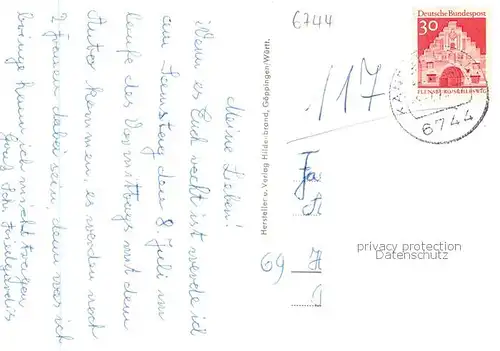 Meine Lieben!
Wenn es Euch recht ist werde ich
am Samstag den 8. Juli im
laufe des Vormittags mit dem
Auto kommen, es werden noch
2 Frauen dabei sein, denn was ich
bringe kann ich nicht tragen
6744
/17
Hersteller u. Verlag Hildenbrand, Göppingen-Württ.
Deutsche Bundespost
30
FLENSBURG/SCHLESWIG
6744
69
privacy protection
Datenschutz